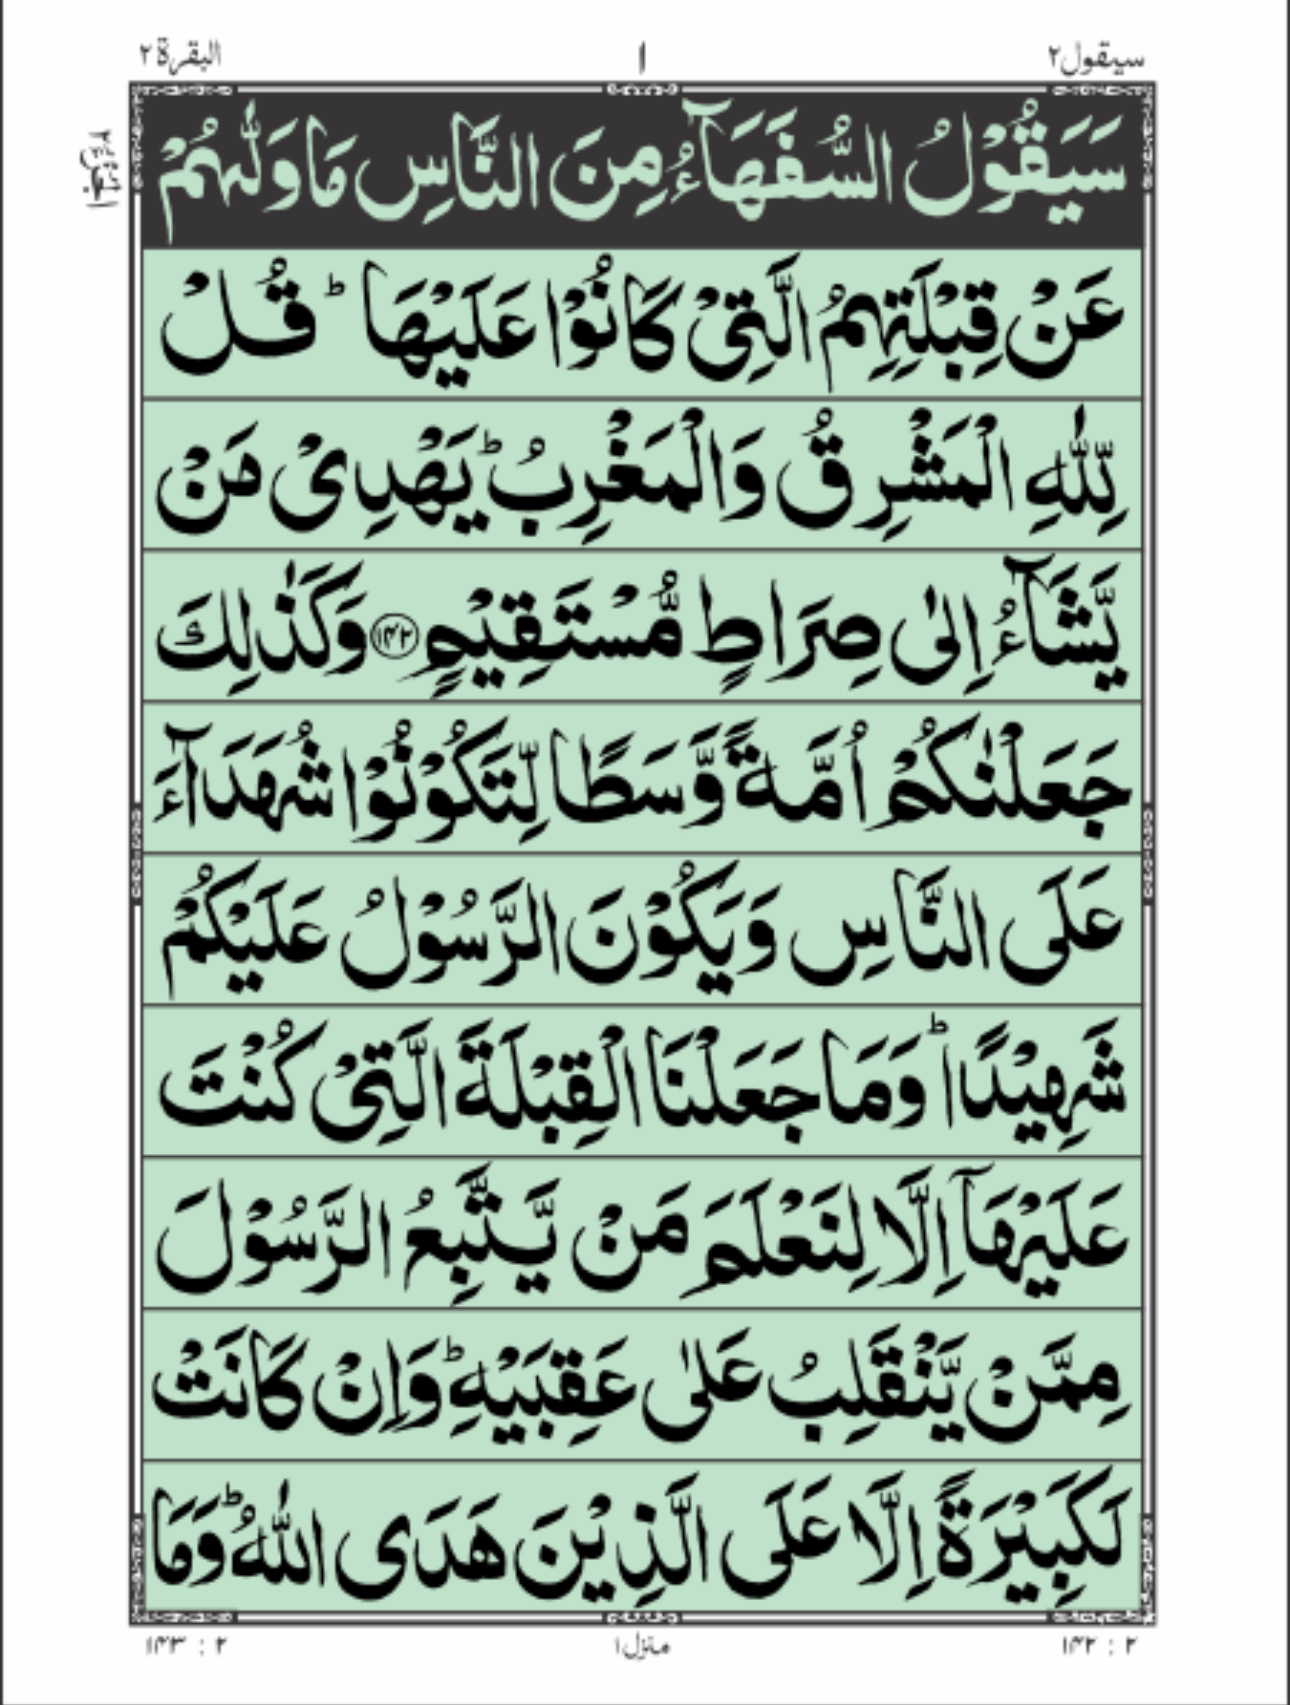 سيقول٢
١
البقرة٢
سَيَقُوْلُ السُّفَهَآءُ مِنَ النَّاسِ مَا وَلّٰىهُمْ
عَنْ قِبْلَتِهِمُ الَّتِیْ كَانُوْا عَلَيْهَا ؕ قُلْ
لِّلّٰهِ الْمَشْرِقُ وَالْمَغْرِبُ ؕ يَهْدِیْ مَنْ
يَّشَآءُ اِلٰی صِرَاطٍ مُّسْتَقِيْمٍ ﴿۱۴۲﴾ وَكَذٰلِكَ
جَعَلْنٰكُمْ اُمَّةً وَّسَطًا لِّتَكُوْنُوْا شُهَدَآءَ
عَلَی النَّاسِ وَيَكُوْنَ الرَّسُوْلُ عَلَيْكُمْ
شَهِيْدًا ؕ وَمَا جَعَلْنَا الْقِبْلَةَ الَّتِیْ كُنْتَ
عَلَيْهَآ اِلَّا لِنَعْلَمَ مَنْ يَّتَّبِعُ الرَّسُوْلَ
مِمَّنْ يَّنْقَلِبُ عَلٰی عَقِبَيْهِ ؕ وَاِنْ كَانَتْ
لَكَبِيْرَةً اِلَّا عَلَی الَّذِيْنَ هَدَی اللّٰهُ ؕ وَمَا
۲ : ۱۴۲
منزل۱
۲ : ۱۴۳